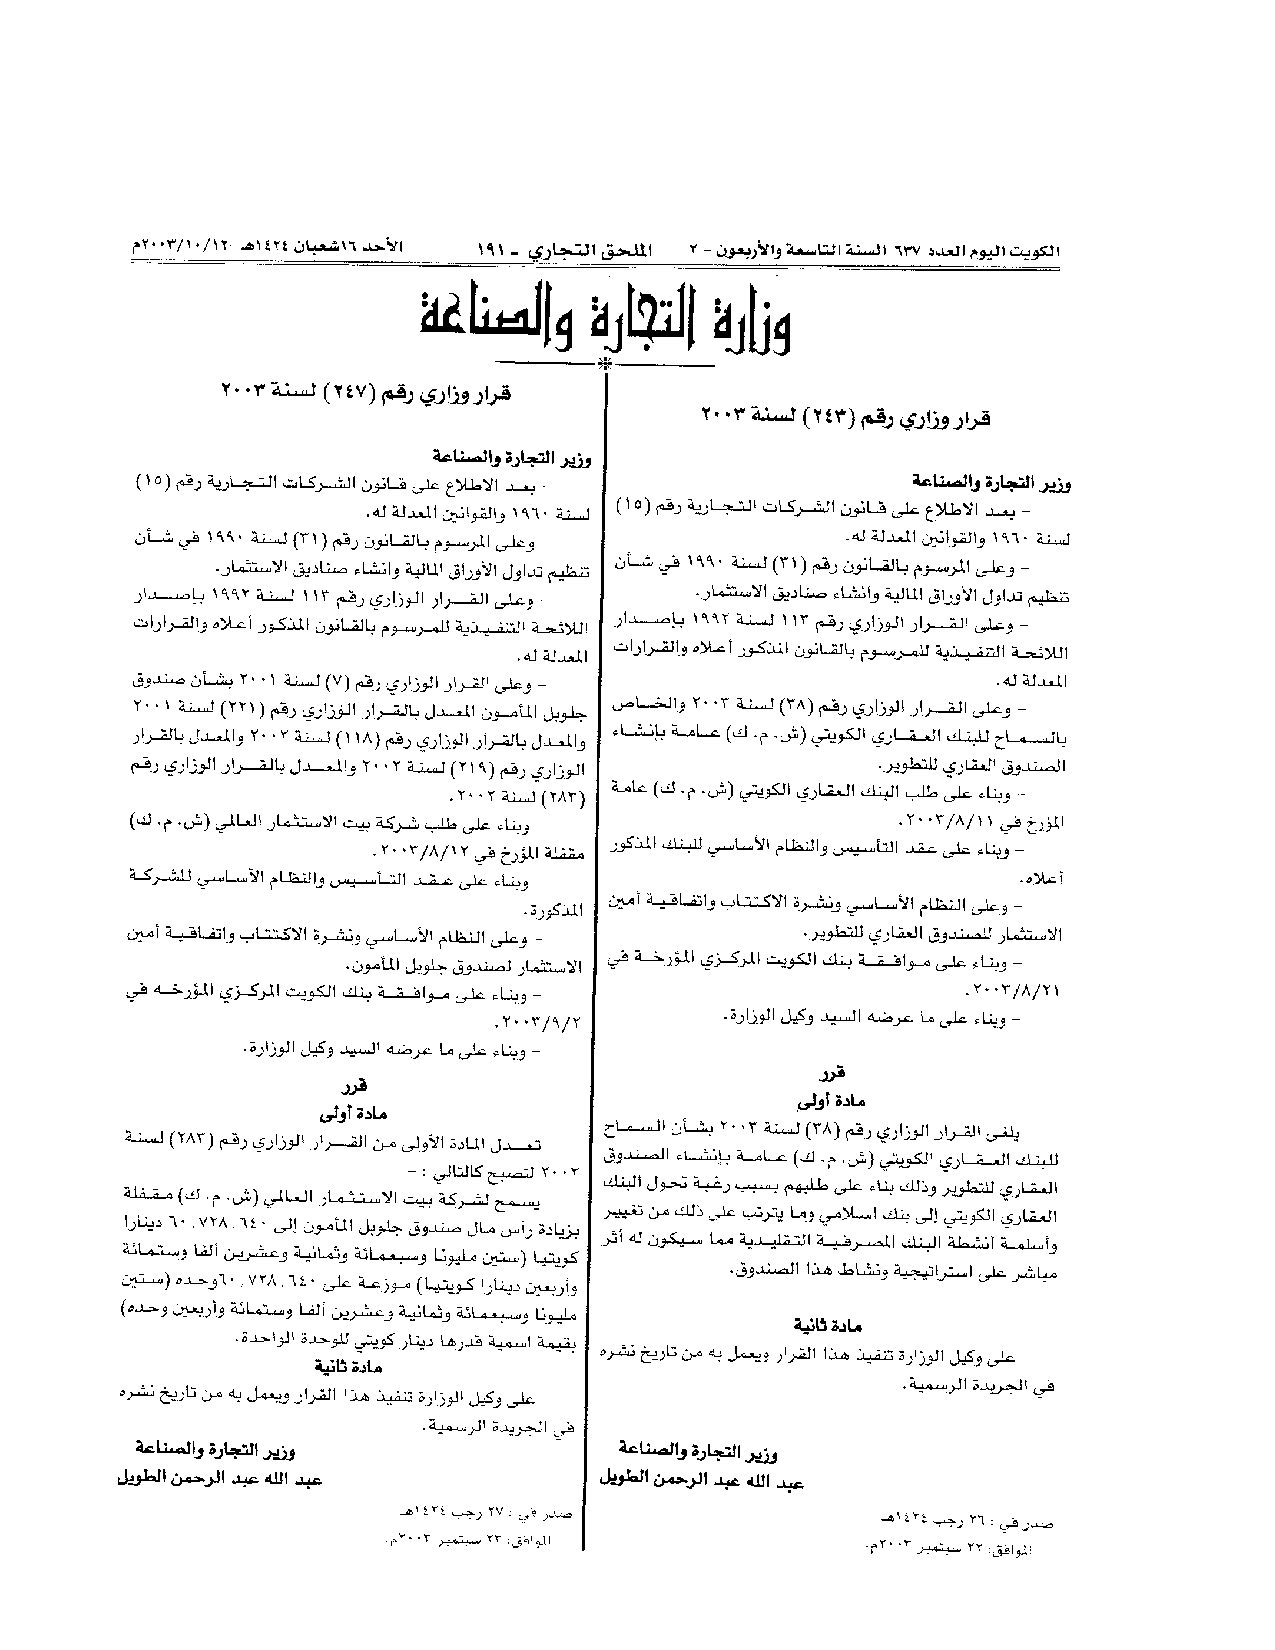 الكويت اليوم العدد ٦٣٧ السنة التاسعة والأربعون - ٢ الملحق التجاري - ١٩١ الأحد ١٦ شعبان ١٤٢٤هـ ٢٠٠٣/١٠/١٢م
وزارة التجارة والصناعة
قرار وزاري رقم (٢٤٣) لسنة ٢٠٠٣
وزير التجارة والصناعة
- بعد الاطلاع على قانون الشركات التجارية رقم (١٥)
لسنة ١٩٦٠ والقوانين المعدلة له.
- وعلى المرسوم بالقانون رقم (٣١) لسنة ١٩٩٠ في شأن
تنظيم تداول الأوراق المالية وانشاء صناديق الاستثمار.
- وعلى القرار الوزاري رقم ١١٣ لسنة ١٩٩٢ بإصدار
اللائحة التنفيذية للمرسوم بالقانون المذكور أعلاه والقرارات
المعدلة له.
- وعلى القرار الوزاري رقم (٣٨) لسنة ٢٠٠٣ والخاص
بالسماح للبنك العقاري الكويتي (ش. م. ك) عامة بإنشاء
الصندوق العقاري للتطوير.
- وبناء على طلب البنك العقاري الكويتي (ش. م. ك) عامة
المؤرخ في ٢٠٠٣/٨/١١.
- وبناء على عقد التأسيس والنظام الأساسي للبنك المذكور
أعلاه.
- وعلى النظام الأساسي ونشرة الاكتتاب واتفاقية أمين
الاستثمار للصندوق العقاري للتطوير.
- وبناء على موافقة بنك الكويت المركزي المؤرخة في
٢٠٠٣/٨/٢١.
- وبناء على ما عرضه السيد وكيل الوزارة.
قرر
مادة أولى
يلغى القرار الوزاري رقم (٣٨) لسنة ٢٠٠٣ بشأن السماح
للبنك العقاري الكويتي (ش. م. ك) عامة بإنشاء الصندوق
العقاري للتطوير وذلك بناء على طلبهم بسبب رغبة تحول البنك
العقاري الكويتي إلى بنك اسلامي وما يترتب على ذلك من تغيير
وأسلمة أنشطة البنك المصرفية التقليدية مما سيكون له أثر
مباشر على استراتيجية ونشاط هذا الصندوق.
مادة ثانية
على وكيل الوزارة تنفيذ هذا القرار ويعمل به من تاريخ نشره
في الجريدة الرسمية.
وزير التجارة والصناعة
عبد الله عبد الرحمن الطويل
صدر في : ٢٦ رجب ١٤٢٤هـ
الموافق: ٢٢ سبتمبر ٢٠٠٣م.
قرار وزاري رقم (٢٤٧) لسنة ٢٠٠٣
وزير التجارة والصناعة
- بعد الاطلاع على قانون الشركات التجارية رقم (١٥)
لسنة ١٩٦٠ والقوانين المعدلة له.
وعلى المرسوم بالقانون رقم (٣١) لسنة ١٩٩٠ في شأن
تنظيم تداول الأوراق المالية وانشاء صناديق الاستثمار.
- وعلى القرار الوزاري رقم ١١٣ لسنة ١٩٩٢ بإصدار
اللائحة التنفيذية للمرسوم بالقانون المذكور أعلاه والقرارات
المعدلة له.
- وعلى القرار الوزاري رقم (٧) لسنة ٢٠٠١ بشأن صندوق
جلوبل المأمون المعدل بالقرار الوزاري رقم (٢٢١) لسنة ٢٠٠١
والمعدل بالقرار الوزاري رقم (١١٨) لسنة ٢٠٠٢ والمعدل بالقرار
الوزاري رقم (٢١٩) لسنة ٢٠٠٢ والمعدل بالقرار الوزاري رقم
(٢٨٣) لسنة ٢٠٠٢.
وبناء على طلب شركة بيت الاستثمار العالمي (ش. م. ك)
مقفلة المؤرخ في ٢٠٠٣/٨/١٢.
وبناء على عقد التأسيس والنظام الأساسي للشركة
المذكورة.
- وعلى النظام الأساسي ونشرة الاكتتاب واتفاقية أمين
الاستثمار لصندوق جلوبل المأمون.
- وبناء على موافقة بنك الكويت المركزي المؤرخه في
٢٠٠٣/٩/٢.
- وبناء على ما عرضه السيد وكيل الوزارة.
قرر
مادة أولى
تعدل المادة الأولى من القرار الوزاري رقم (٢٨٣) لسنة
٢٠٠٢ لتصبح كالتالي : -
يسمح لشركة بيت الاستثمار العالمي (ش. م. ك) مقفلة
بزيادة رأس مال صندوق جلوبل المأمون إلى ٦٠.٧٢٨.٦٤٠ دينارا
كويتيا (ستين مليونا وسبعمائة وثمانية وعشرين ألفا وستمائة
وأربعين دينارا كويتيا) موزعة على ٦٠.٧٢٨.٦٤٠ وحده (ستين
مليونا وسبعمائة وثمانية وعشرين ألفا وستمائة وأربعين وحده)
بقيمة اسمية قدرها دينار كويتي للوحدة الواحدة.
مادة ثانية
على وكيل الوزارة تنفيذ هذا القرار ويعمل به من تاريخ نشره
في الجريدة الرسمية.
وزير التجارة والصناعة
عبد الله عبد الرحمن الطويل
صدر في : ٢٧ رجب ١٤٢٤هـ
الموافق: ٢٣ سبتمبر ٢٠٠٣م.